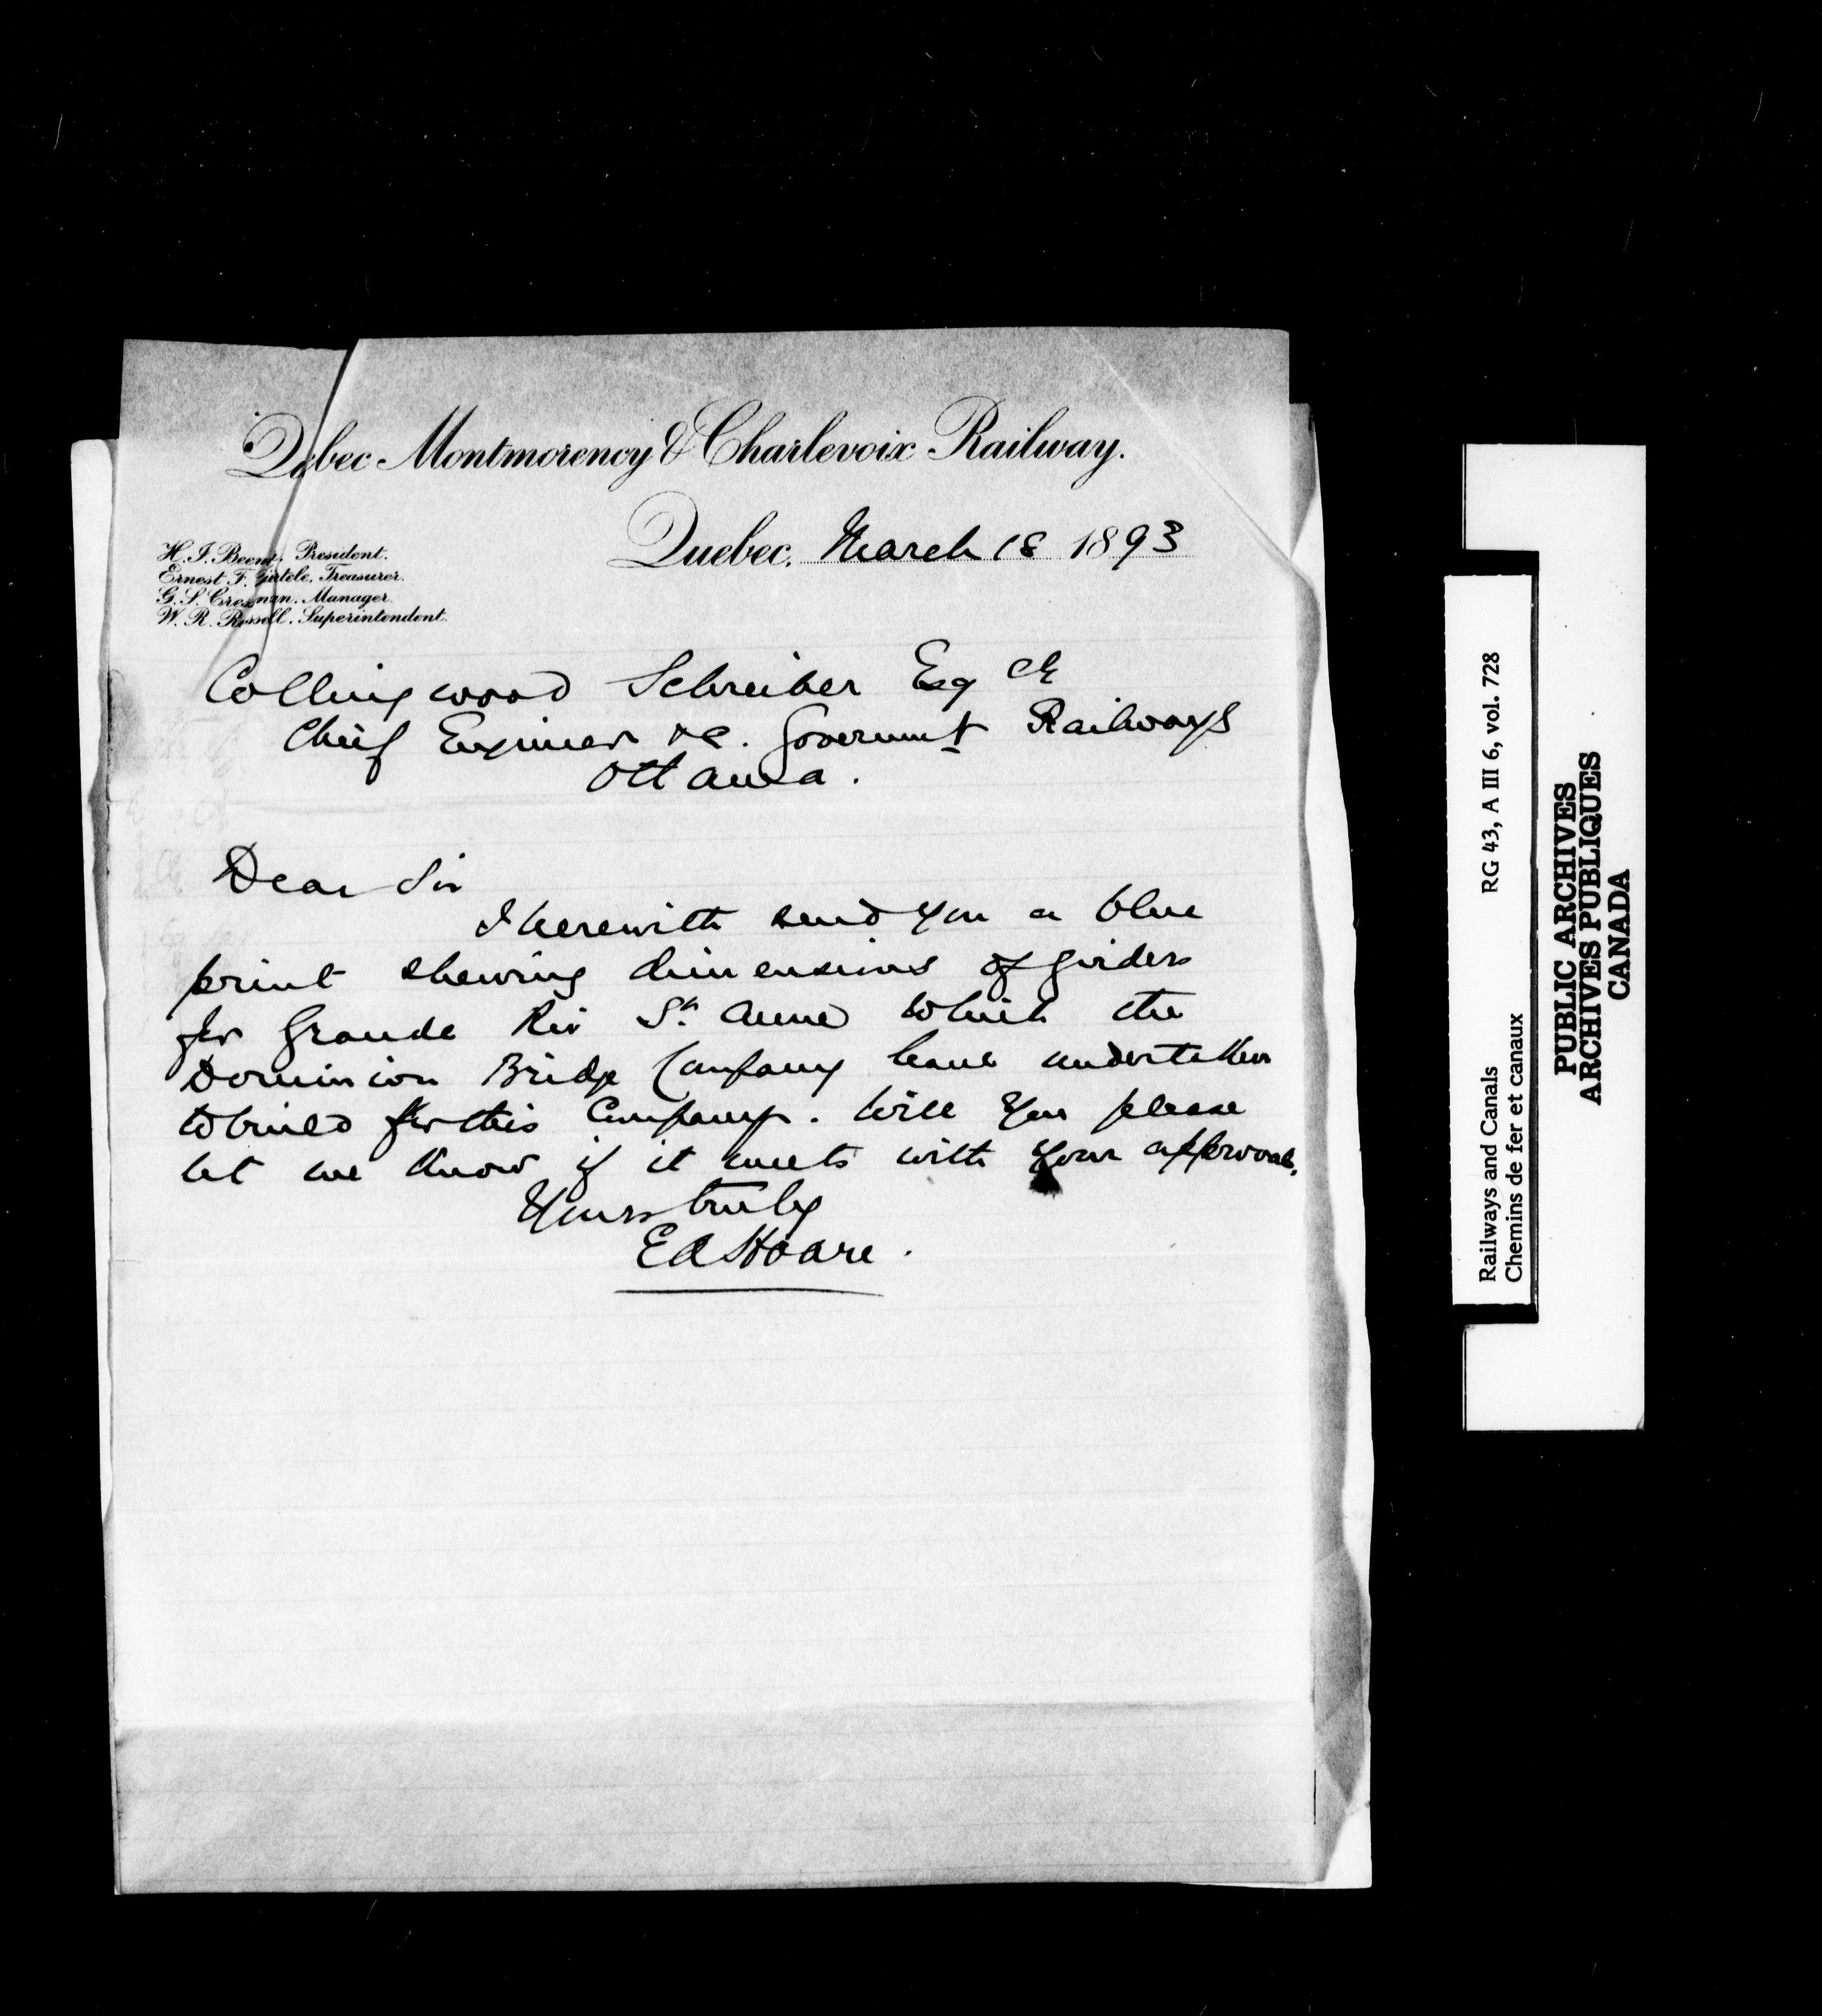 Quebec Montmorency & Charlevoix Railway.
Quebec, March 18 1893
H. J. Beemer, President.
Ernest F. Würtele, Treasurer.
G. S. Cressman, Manager.
W. R. Russell, Superintendent.
Collingwood Schreiber Esq CE
Chief Engineer &c. Governmt Railways
Ottawa.
Dear Sir
I herewith send you a blue
print shewing dimensions of girders
for Grande Riv St. Anne which the
Dominion Bridge Company have undertaken
to build for this Company. Will you please
let me know if it meets with your approval.
Yours truly
EA Hoare.
Railways and Canals RG 43, A III 6, vol. 728
Chemins de fer et canaux
PUBLIC ARCHIVES
ARCHIVES PUBLIQUES
CANADA